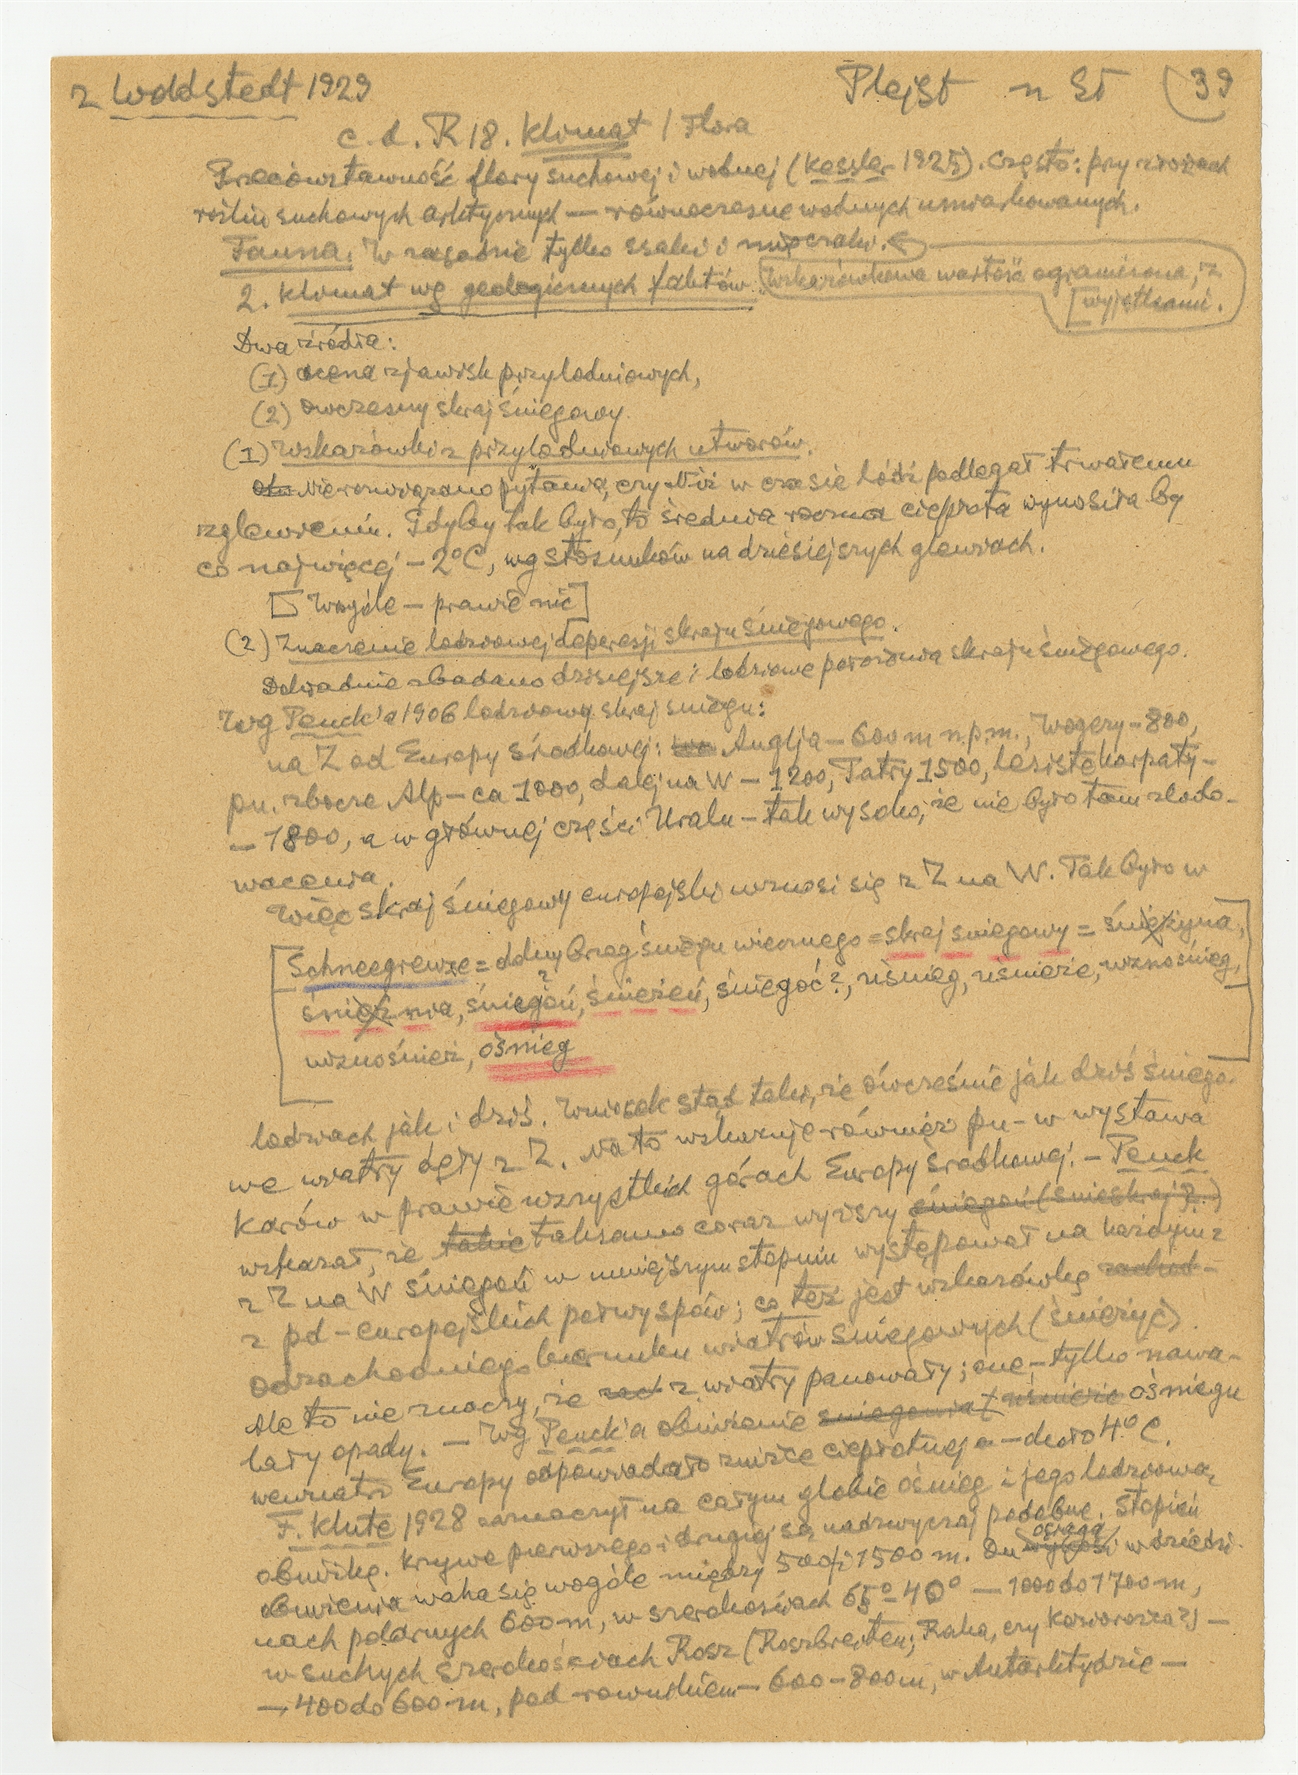 z Woldstedt 1929 Plejst n St (39
c.d. R 18. Klimat / Flora
Przeciwstawność flory suchowej i wodnej (Kessler 1925). Często: przy
roślin suchowych arktycznych — równoczesne wodnych umiarkowanych.
Fauna. W zasadzie tylko ssaki i mięczaki.
Wskazówkowa wartość ograniczona, z
[wyjątkami.
2. Klimat wg geologicznych faktów.
Dwa źródła:
(1) ocena zjawisk przylodniowych,
(2) owczesny skraj śniegowy
(1) Wskazówki z przylodniowych utworów.
Nierozwiązano pytania, czy Niż w czasie lódź podlegał trwałemu
zglewieniu. Gdyby tak było, to średnia roczna ciepłota wynosiła by
co najwięcej – 2°C, wg stosunków na dzisiejszych glewiach.
[Wogóle – prawie nic]
(2) Znaczenie lodzwowej depresji skraju śniegowego.
Dokładnie zbadano dzisiejsze i lodziowe położenia skraju śniegowego.
Wg Penck'a 1906 lodzwowy skraj śniegu:
na Z od Europy środkowej: Anglja – 600 m n.p.m., Wogezy – 800,
pn. zbocze Alp – ca 1000, dalej na W – 1200, Tatry 1500, lesiste Karpaty –
– 1800, a w głównej części Uralu – tak wysoko, że nie było tam zlodo-
wacenia.
Więc skraj śniegowy europejski wznosi się z Z na W. Tak było w
[Schneegrenze = dolny brzeg śniegu wiecznego = skraj śniegowy = śnieżyna,
śnieżnia, śniegoń, śnieżeń, śniegoć?, uśnieg, uśnieże, wznośnieg,
wznośnież, ośnieg
lodzwach jak i dziś. Wniosek stąd taki, że ówcześnie jak dziś śniego-
we wiatry były z Z. Na to wskazuje również pn-w wystawa
karów w prawie wszystkich górach Europy środkowej. – Penck
wykazał, że takie taksamo coraz wyższy śniegoń (śnieskraj?.)
z Z na W śniegoń w mniejszym stopniu występował na każdym z
z pd-europejskich półwyspów; co też jest wskazówką zachod-
odzachodniego kierunku wiatrów śniegowych (śnieżyć).
Ale to nie znaczy, że zach z. wiatry panowały; one – tylko nawa-
lały opady. — Wg Penck'a obniżenie ośniegu
wewnątrz Europy odpowiadało zniżce ciepłotnej o – około 4°C.
F. Klute 1928 zaznaczył na całym globie ośnieg i jego lodzwową
obniżkę. Krzywe pierwszego i drugiej są nadzwyczaj podobne. Stopień
obniżenia waha się wogóle między 500 i 1500 m. On osiąga w dziedzi-
nach polarnych 600 m, w szerokościach 65°–40° — 1000 do 1700 m,
w suchych szerokościach Rosz (Roszbreiten; Raha, czy Koniorozia?) —
— 400 do 600 m, pod równikiem – 600–800 m, w Antarktydzie —